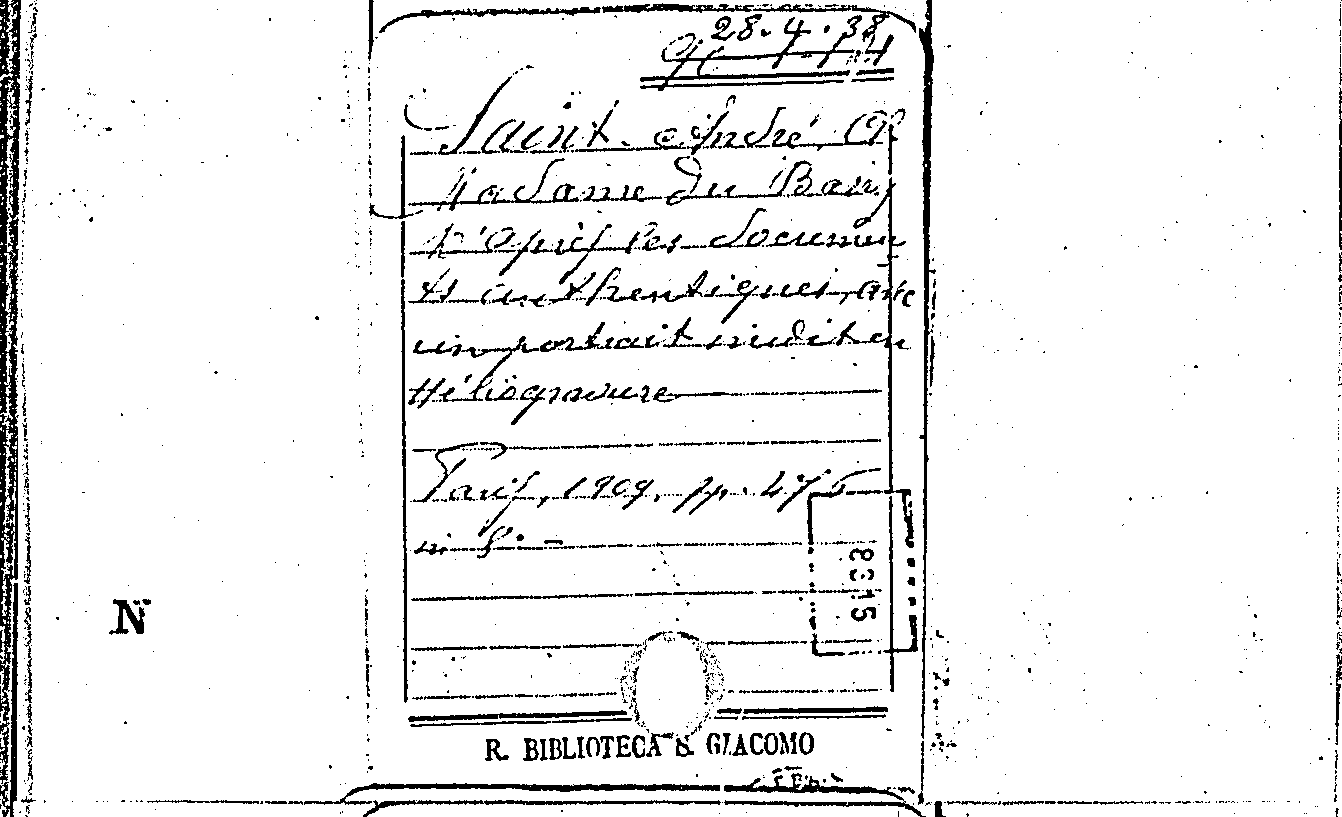 28.4.38
Saint-André, Cl
Madame du Barry
d'après les documen
ts authentiques, avec
un portrait inédit en
Héliogravure
Paris, 1909, pp. 476
in 8° -
8315
N
R. BIBLIOTECA S. GIACOMO